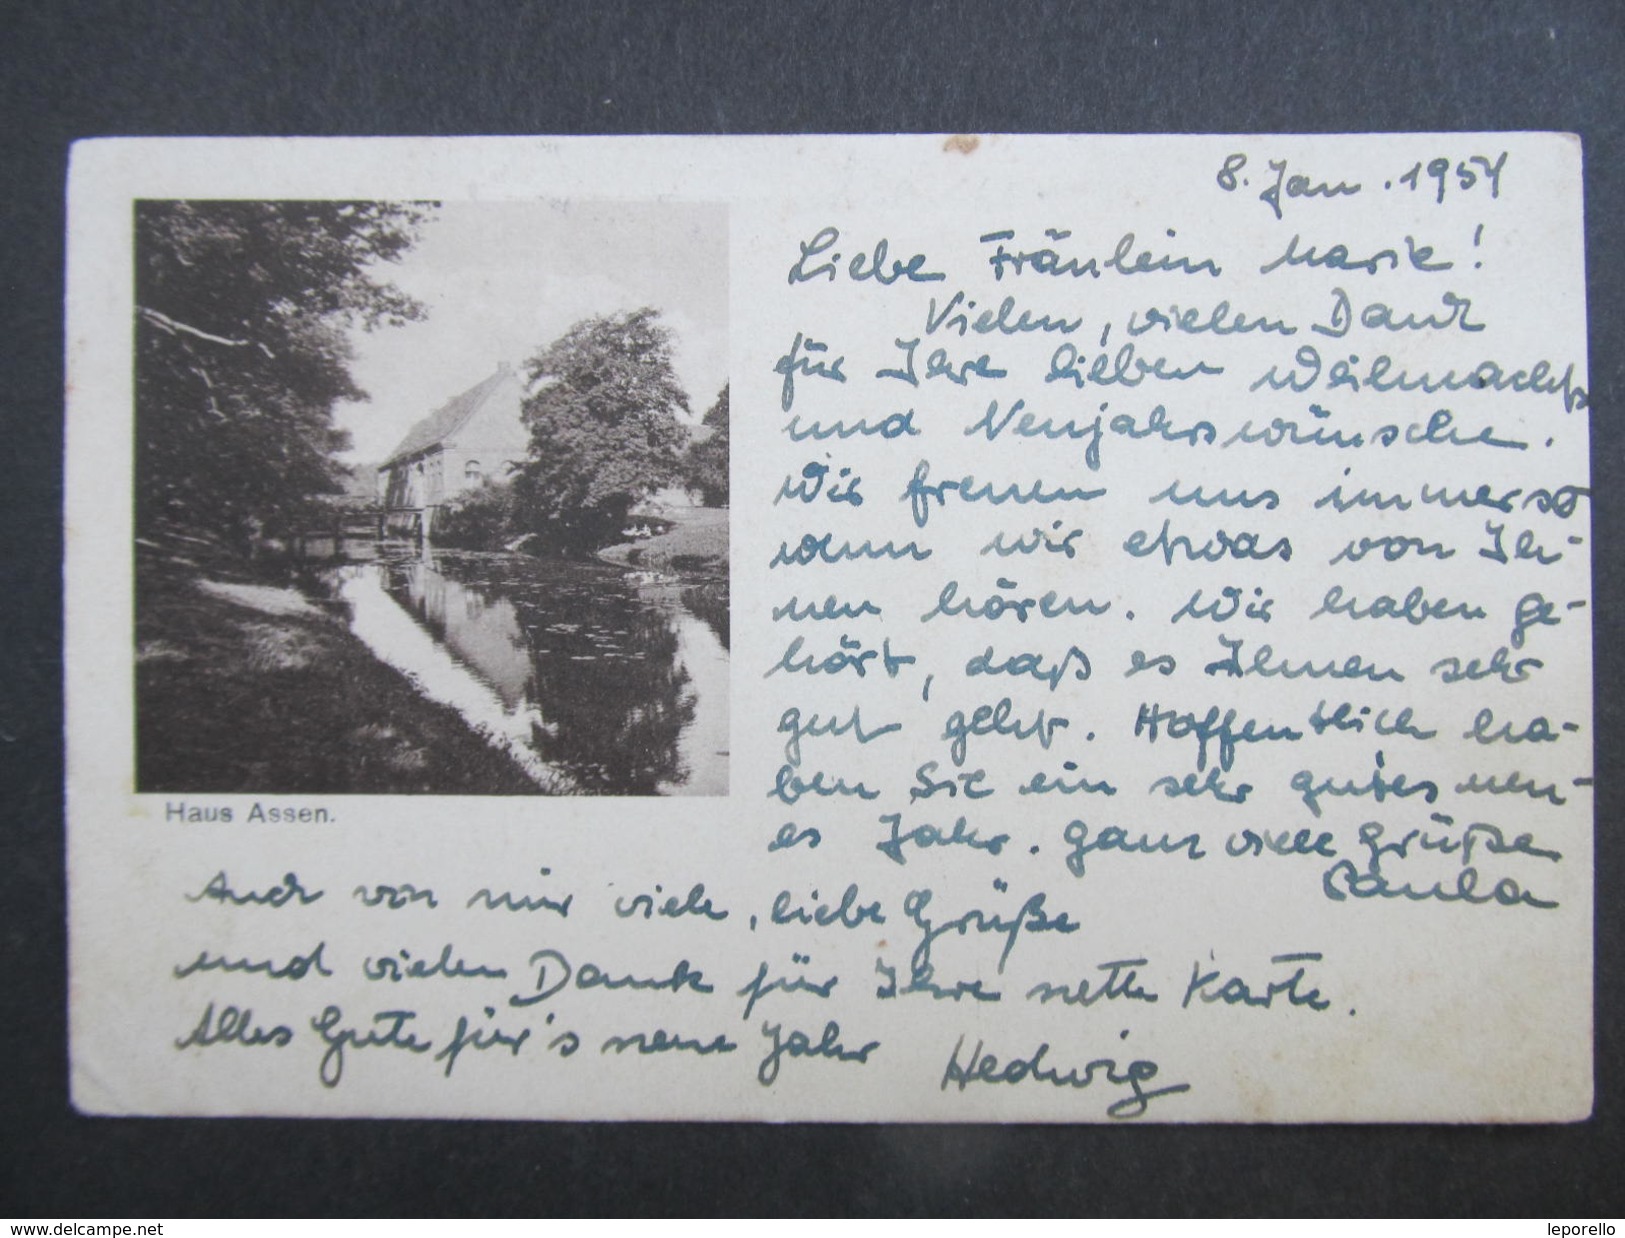 8. Jan. 1954
Liebe Fräulein Marie!
Vielen, vielen Dank
für Ihre lieben Weihnachts
und Neujahrswünsche.
Wir freuen uns immer so
wenn wir etwas von Ih-
nen hören. Wir haben ge-
hört, daß es Ihnen sehr
gut geht. Hoffentlich ha-
ben Sie ein sehr gutes neu-
es Jahr. Ganz viele Grüße
Paula
Haus Assen.
Auch von mir viele, liebe Grüße
und vielen Dank für Ihre nette Karte.
Alles Gute für's neue Jahr
Hedwig
www.delcampe.net
leporello